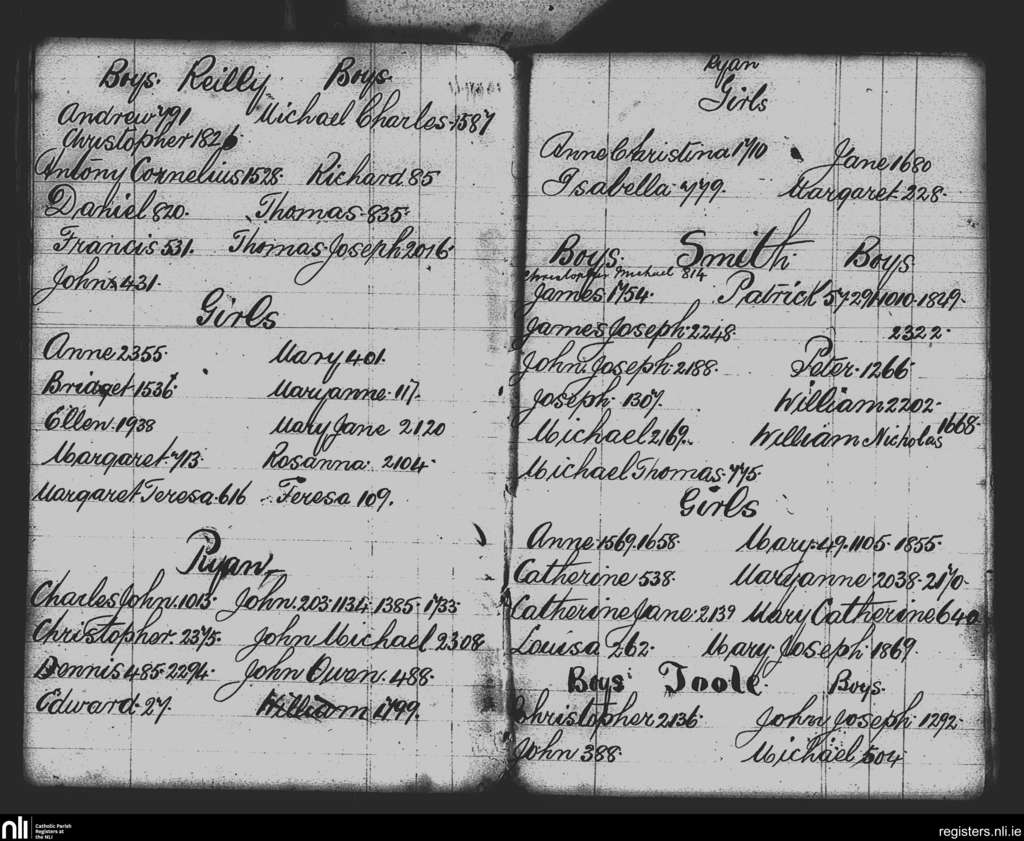 Boys. Reilly Boys.
Andrew 791 Michael Charles. 1587
Christopher 1826
Antony Cornelius 1528. Richard. 85
Daniel 820. Thomas. 835.
Francis 531. Thomas Joseph 2016.
John 431.
Girls
Anne 2355. Mary 401.
Bridget 1536. Maryanne. 117.
Ellen. 1938 Mary Jane 2120
Margaret. 713. Rosanna. 2104.
Margaret Teresa. 616 Teresa 109.
Ryan
Charles John. 1013. John. 203. 1134. 1385. 1733.
Christopher. 2375. John Michael. 2308
Dennis 485. 2294. John Owen. 488.
Edward. 27. William 1799.
Ryan
Girls
Anne Christina 1710 Jane 1680
Isabella. 779. Margaret. 228.
Boys. Smith. Boys
Christopher Michael 814
James 1754. Patrick 57. 291. 1010. 1829.
James Joseph. 2248 2322.
John. Joseph. 2188. Peter. 1266.
Joseph. 1307. William 2202.
Michael 2169. William Nicholas 1668.
Michael Thomas. 775.
Girls
Anne. 1569. 1658. Mary. 49. 1105. 1855.
Catherine. 538. Maryanne. 2038. 2170.
Catherine Jane. 2139 Mary Catherine 640
Louisa 262. Mary Joseph. 1869.
Boys. Toole. Boys.
Christopher 2136. John Joseph. 1292.
John 388. Michael 504
nli Catholic Parish
Registers at
the NLI
registers.nli.ie